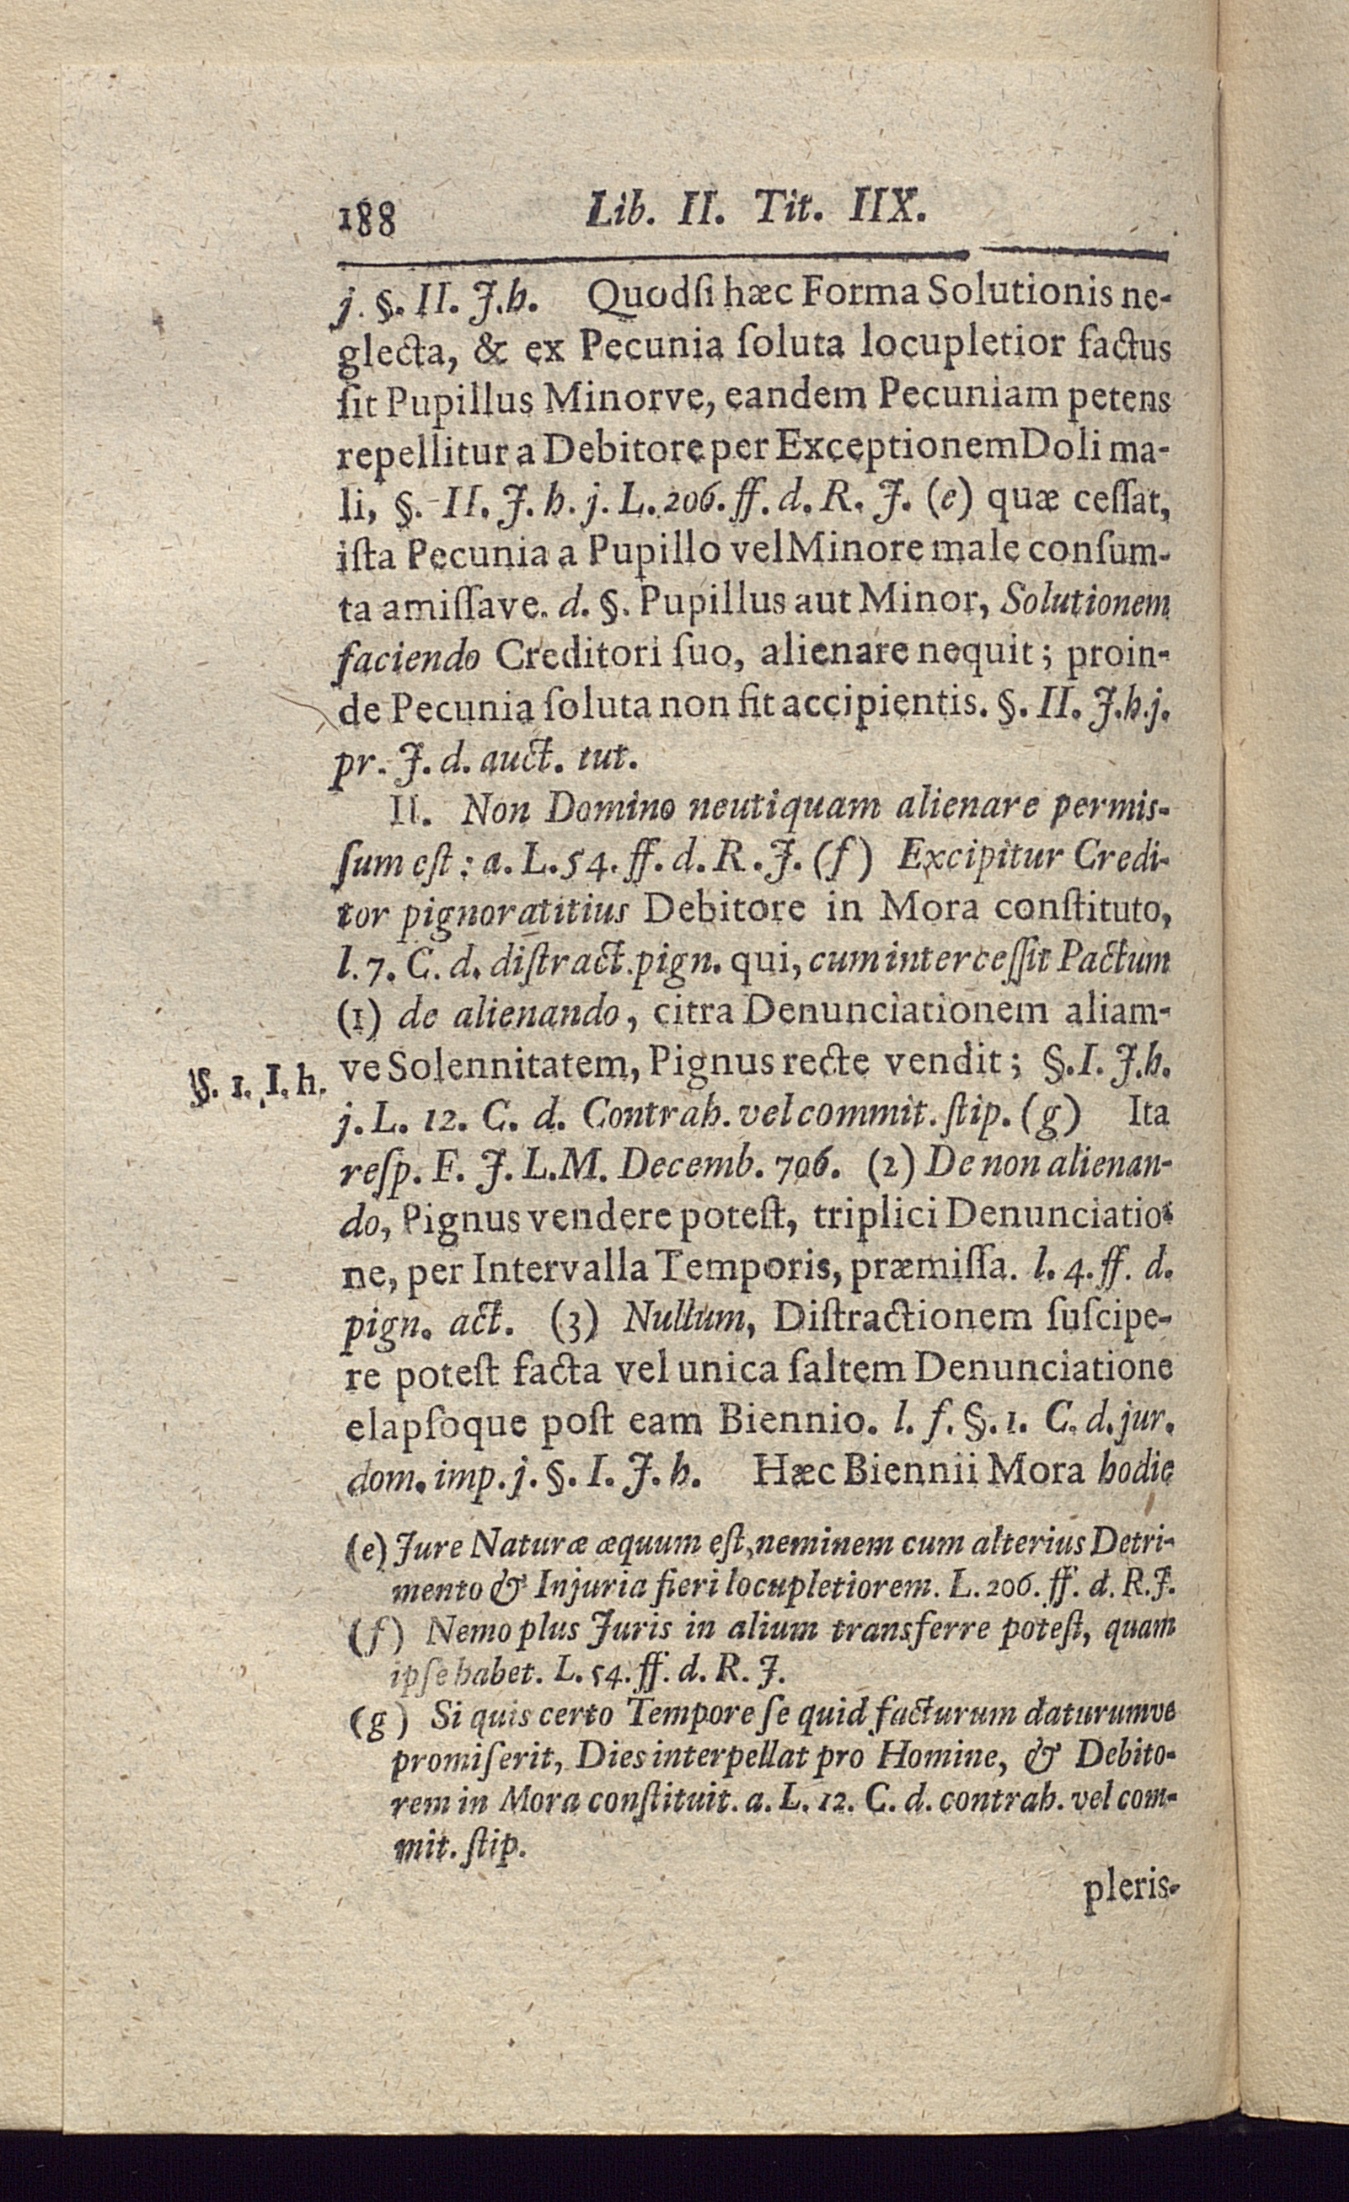 188 Lib. II. Tit. IIX.
j. §. II. J.h. Quodſi hæc Forma Solutionis ne-
glecta, & ex Pecunia ſoluta locupletior factus
ſit Pupillus Minorve, eandem Pecuniam petens
repellitur a Debitore per Exceptionem Doli ma-
li, §. II. J. h. j. L. 206. ff. d. R. J. (e) quæ ceſſat,
iſta Pecunia a Pupillo vel Minore male conſum-
ta amiſſave. d. §. Pupillus aut Minor, Solutionem
faciendo Creditori ſuo, alienare nequit; proin-
de Pecunia ſoluta non fit accipientis. §. II. J.h.j.
pr. J. d. auct. tut.
II. Non Domino neutiquam alienare permiſ-
ſum eſt: a. L. 54. ff. d. R. J. (f) Excipitur Credi-
tor pignoratitius Debitore in Mora conſtituto,
l. 7. C. d. diſtract. pign. qui, cum interceſſit Pactum
(1) de alienando, citra Denunciationem aliam-
§. 1. I. h. ve Solennitatem, Pignus recte vendit; §. I. J.h.
j. L. 12. C. d. Contrah. vel commit. ſtip. (g) Ita
reſp. F. J. L.M. Decemb. 706. (2) De non alienan-
do, Pignus vendere poteſt, triplici Denunciatio-
ne, per Intervalla Temporis, præmiſſa. l. 4. ff. d.
pign. act. (3) Nullum, Diſtractionem ſuſcipe-
re poteſt facta vel unica ſaltem Denunciatione
elapſoque poſt eam Biennio. l. f. §. 1. C. d. jur.
dom. imp. j. §. I. J. h. Hæc Biennii Mora hodie
(e) Jure Naturæ æquum eſt, neminem cum alterius Detri-
mento & Injuria fieri locupletiorem. L. 206. ff. d. R.J.
(f) Nemo plus Juris in alium transferre poteſt, quam
ipſe habet. L. 54. ff. d. R. J.
(g) Si quis certo Tempore ſe quid facturum daturumve
promiſerit, Dies interpellat pro Homine, & Debito-
rem in Mora conſtituit. a. L. 12. C. d. contrah. vel com-
mit. ſtip.
pleris-